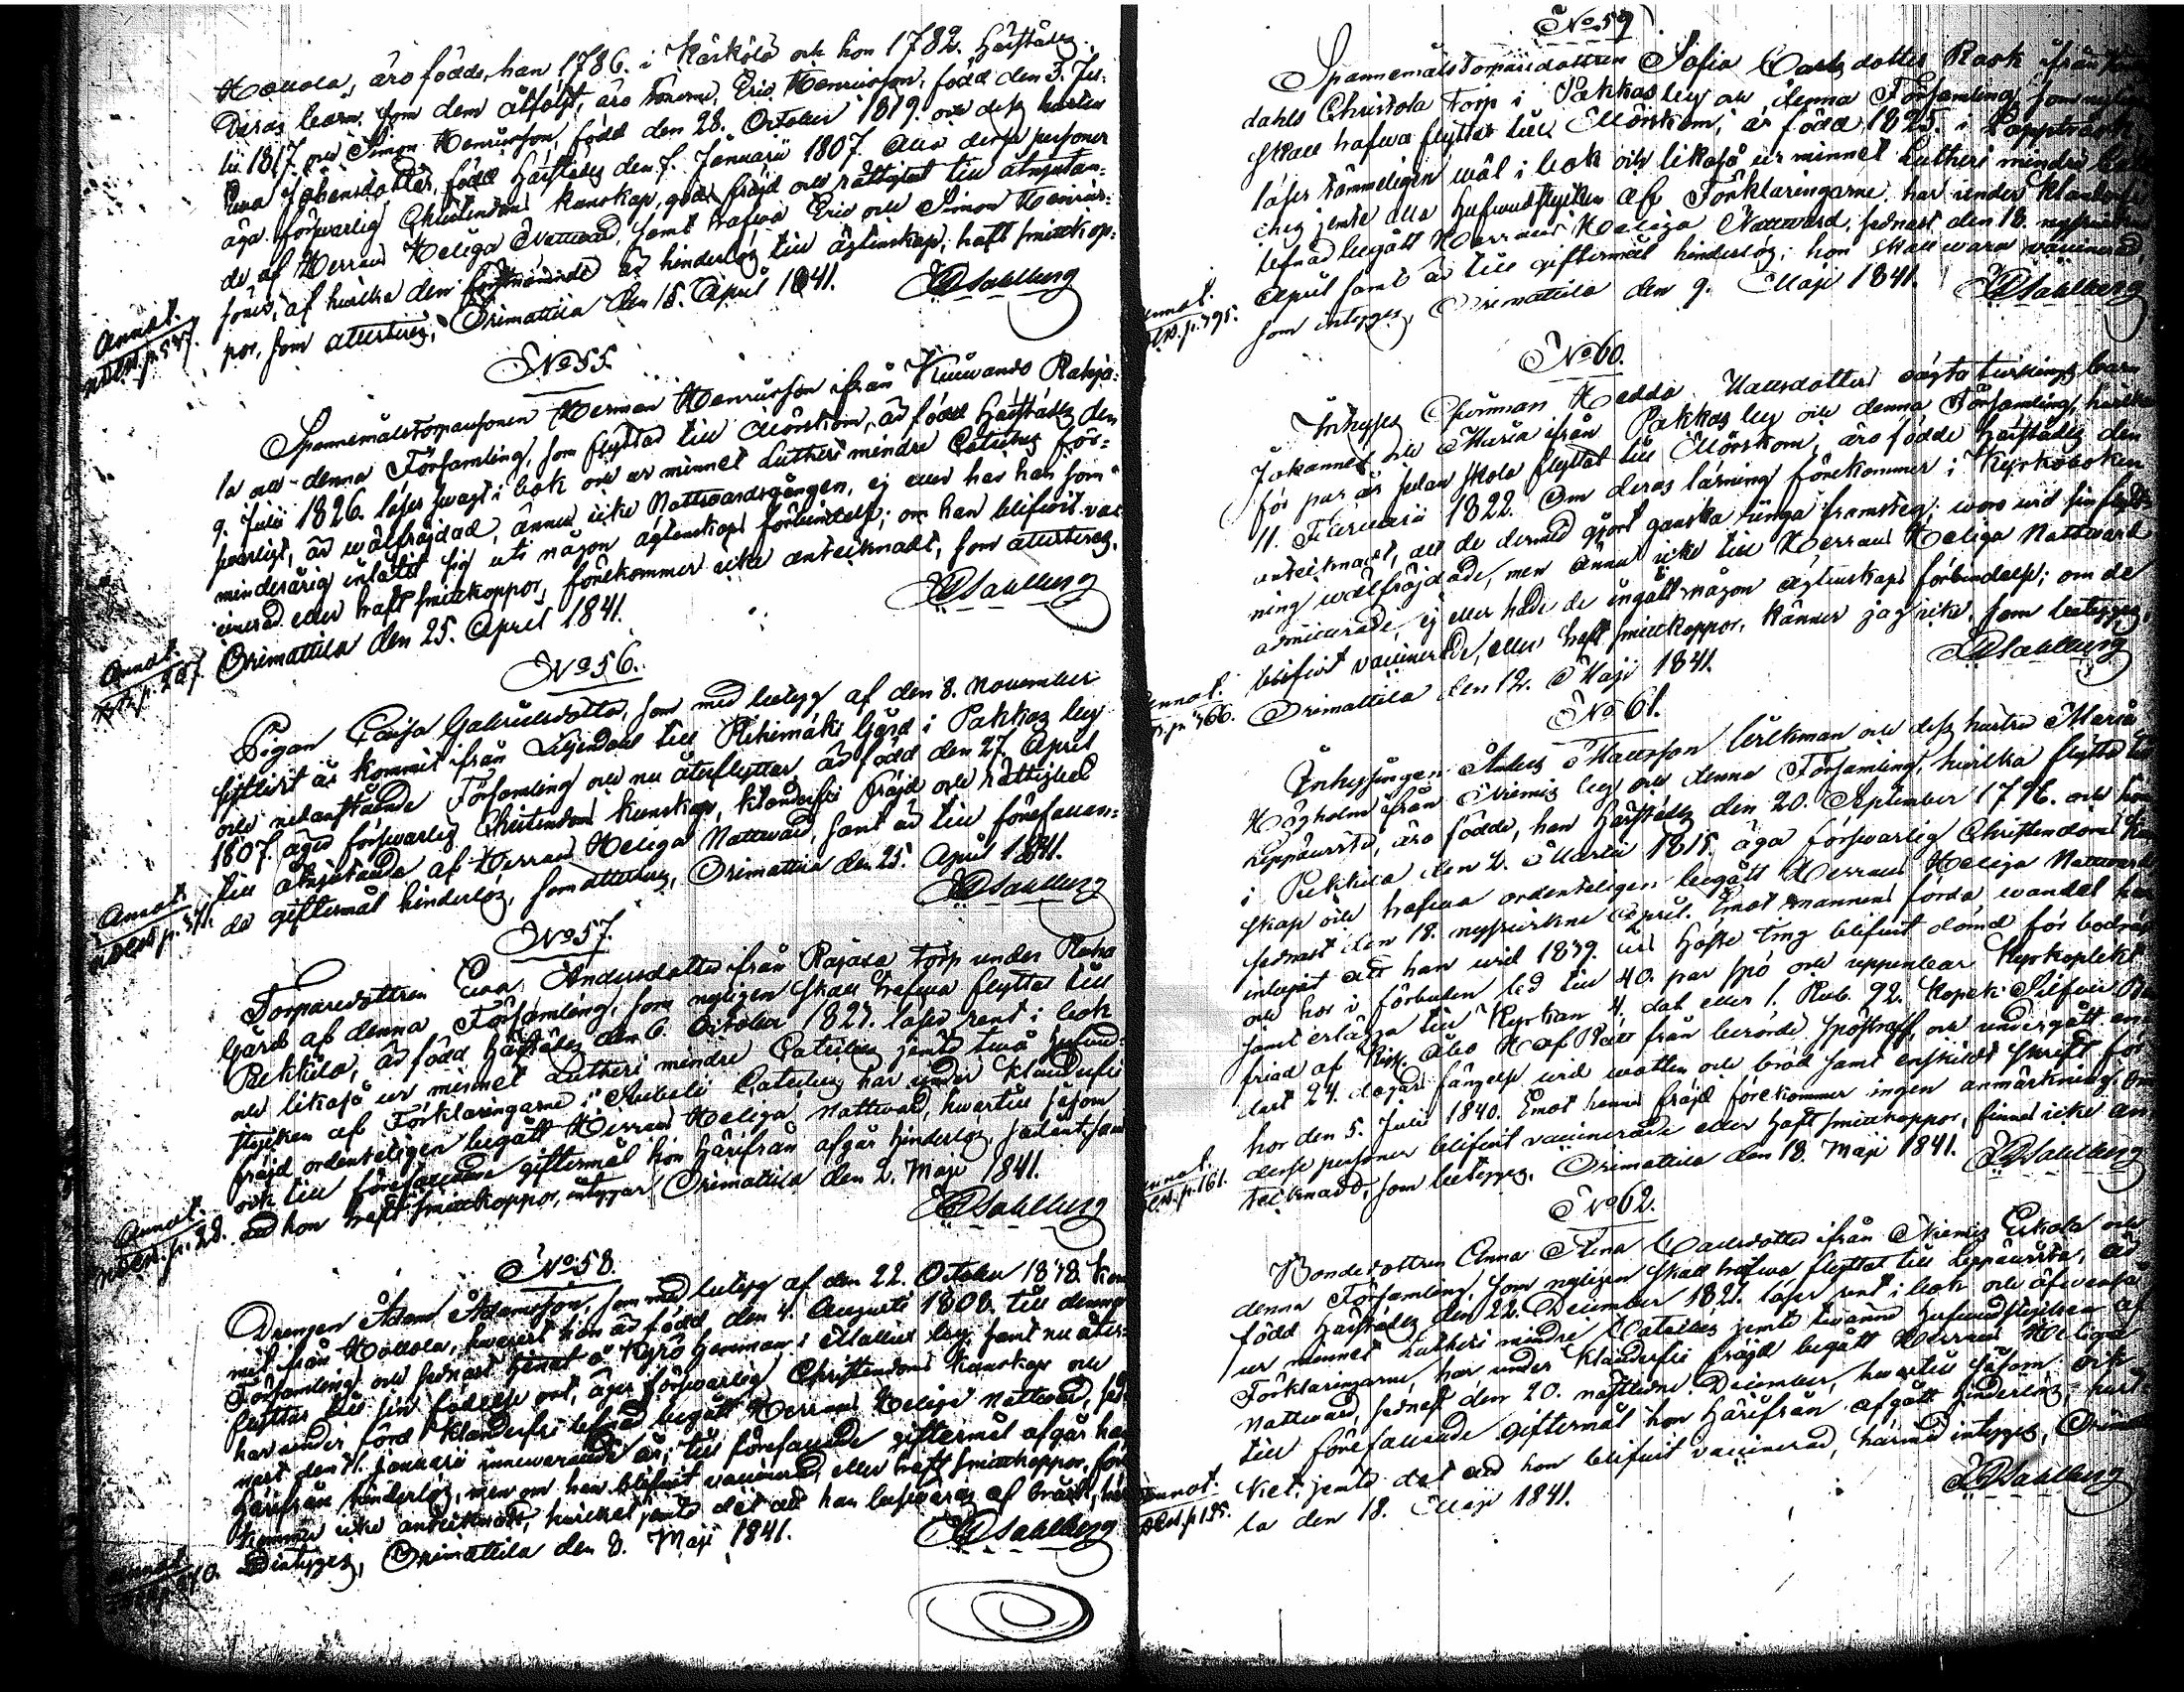 Hollola, äro födde, han 1786. i Kärkölä och hon 1782. härstädes.
Deras barn, som dem åtföljt, äro sönerne, Eric Henricsson, född den 3. Ju-
lii 1817. och Simon Henricsson, född den 28. October 1819. och dess hustru
Johansdotter, född härstädes den 7. Januarii 1807. Alla dessa personer
äga försvarlig Christendoms kunskap, god fräjd och rättighet till åtnjutan-
de af Herrans Heliga Nattvard, samt hafva Eric och Simon Henrics-
söner, af hvilka den förstnämnde är hinderlös till ägtenskap, haft smittkop-
por, som attesteras, Orimattila den 18. April 1841.
Annot.
JGSahlberg
No 55.
Spannemålstorparesonen Herman Henricsson ifrån Kuivando
la och denna Församling, som flyttar till Mörskom, är född härstädes den
9. Julii 1826. läser svagt i bok och ur minnet Lutheri mindre Catches för-
svarligt, är wälfräjdad, ännu icke Nattvardsgången, ej eller har han som
minderårig inlåtit sig uti någon ägtenskaps förbindelse; om han blifvit vac-
cinerad eller haft smittkoppor, förekommer icke antecknadt, som attesteras.
Orimattila den 25. April 1841.
Annot.
JGSahlberg
No 56.
Pigan Caisa Gabrielsdotter, som med betyg af den 8. November
sistlidit år kommit ifrån Liljendal till Riihimäki Gård i Pakkas by
och nedanstående Församling och nu återflyttar, är född den 27. April
1807. äger försvarlig Christendoms kunskap, klanderfri fräjd och rättighet
till åtnjutande af Herrans Heliga Nattvard, samt är till förefallan-
de giftermål hinderlös, som attesteras, Orimattila den 25. April 1841.
Annot.
JGSahlberg
No 57.
Torparedottren Eva Andersdotter ifrån Rajasa torp under
Gård af denna Församling, som nyligen skall hafva flyttat till
Pukkila, är född härstädes den 6. October 1821. läser rent i bok
och likaså ur minnet Lutheri mindre Catches jemte två hufvud-
stycken af Förklaringarne i Svebelii Catches, har under klanderfri
fräjd ordenteligen begått Herrans Heliga Nattvard, hvartill såsom
ock till förefallande giftermål hon härifrån afgår hinderlös, sådant, samt
att hon haft smittkoppor, intygar, Orimattila den 2. Maji 1841.
Annot.
JGSahlberg
No 58.
Drengen Adam Adamsson, som med betyg af den 22. October 1838. kom-
mit från Hollola, hvarest han är född den 4. Augusti 1808. till denna
Församling och sednast tjenat å Kyrö hemman i Mallus by, samt nu åter-
flyttar till sin födelse ort, äger försvarlig Christendoms kunskap och
har under förd klanderfri lefnad begått Herrans Heliga Nattvard, sed-
nast den 11. Januarii innevarande år; till förefallande giftermål afgår han
härifrån hinderlös, men om han blifvit vaccinerad eller haft smittkoppor, före-
kommer icke antecknadt, hvilket jemte det att han besväras af bråck, här-
medelst betygas, Orimattila den 8. Maji 1841.
JGSahlberg
No 59.
Spannemålstorparedottren Sofia Carlsdotter Rask ifrån
dahls Christola torp i Pakkas by och denna Församling, som nyligen
skall hafva flyttat till Mörskom, är född 1825. i Lappträsk
läser tämmeligen wäl i bok och likaså ur minnet Lutheri mindre
jemte alla hufvudstycken af Förklaringarne, har under klanderfri
lefnad begått Herrans Heliga Nattvard, sednast den 18. nyssvikne
April samt är till giftermål hinderlös; hon skall wara vaccinerad,
som intygas, Orimattila den 9. Maji 1841.
JGSahlberg
No 60.
Inhyses Enkan Hedda Mattsdotters oägta tvillings barn
Johannes och Maria ifrån Pakkas by och denna Församling, hvilka
för par år sedan skola flyttat till Mörskom, äro födde härstädes den
11. Februarii 1822. Om deras läsning förekommer i Kyrkoboken
antecknadt, att de dermed gjort ganska ringa framsteg; woro wid sin flytt-
ning wälfräjdade, men ännu icke till Herrans Heliga Nattvard
admitterade, ej eller hade de ingått någon ägtenskaps förbindelse; om de
blifvit vaccinerade, eller haft smittkoppor, känner jag icke, som betygas,
Orimattila den 12. Maji 1841.
JGSahlberg
No 61.
Inhysingen Anders Mattsson och dess hustru Maria
Högholm ifrån Niemis by och denna Församling, hvilka flytta till
Leppäwirta, äro födde, han härstädes den 20. September 1796. och hon
i Pukkila den 2. Martii 1815. äga försvarlig Christendoms kun-
skap och hafva ordenteligen begått Herrans Heliga Nattvard
sednast den 18. nyssvikne April. Emot mannens förda wandel har
inlupit att han wid 1839. års Höste Ting blifvit dömd för
och hor i förbuden led till 40. par spö och uppenbar Kyrkoplikt
samt erlägga till Kyrkan 4. dal eller 1. Rub. 92. Kopek Silfver
friad af Kejs. Åbo Hof Rätt från berörde spöstraff, och undergått en-
dast 24. dagars fängelse wid watten och bröd samt enskildt skrift för
hor den 5. Julii 1840. Emot hennes fräjd förekommer ingen anmärkning. Om
desse personer blifvit vaccinerade eller haft smittkoppor, finnes icke an-
tecknadt, som betygas, Orimattila den 18. Maji 1841.
JGSahlberg
No 62.
Bondedottren Anna Stina Carlsdotter ifrån Niemis Eskola och
denna Församling, som nyligen skall hafva flyttat till Leppäwirta, är
född härstädes den 22. December 1821. läser rent i bok och äfvenså
ur minnet Lutheri mindre Catches jemte tvänne hufvudstycken af
Förklaringarne, har under klanderfri fräjd begått Herrans Heliga
Nattvard, sednast den 20. nästledne December, hvartill såsom ock
till förefallande giftermål hon härifrån afgått hinderlös;
jemte det att hon blifvit vaccinerad, härmed intygas, Orimatti-
la den 18. Maji 1841.
JGSahlberg